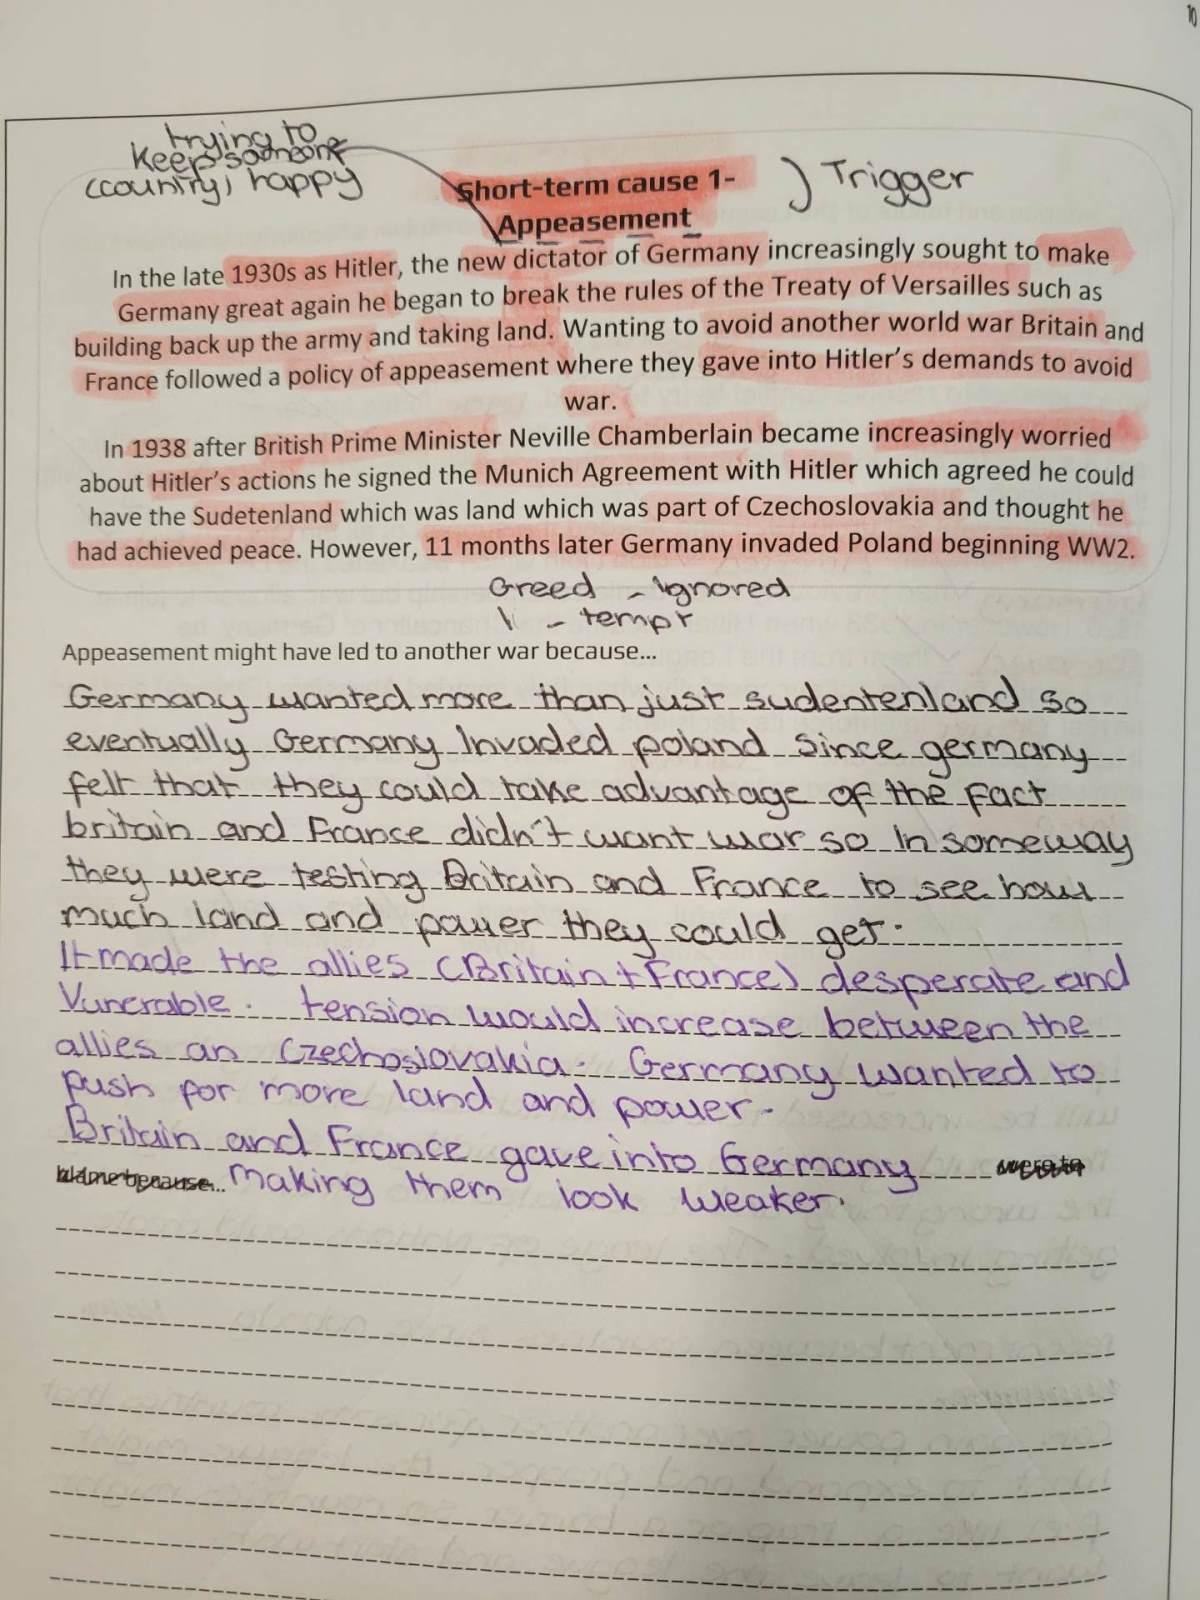 10
trying to
keep someone
(country) happy
Short-term cause 1-
Appeasement
) Trigger
In the late 1930s as Hitler, the new dictator of Germany increasingly sought to make
Germany great again he began to break the rules of the Treaty of Versailles such as
building back up the army and taking land. Wanting to avoid another world war Britain and
France followed a policy of appeasement where they gave into Hitler's demands to avoid
war.
In 1938 after British Prime Minister Neville Chamberlain became increasingly worried
about Hitler's actions he signed the Munich Agreement with Hitler which agreed he could
have the Sudetenland which was land which was part of Czechoslovakia and thought he
had achieved peace. However, 11 months later Germany invaded Poland beginning WW2.
Greed - ignored
- tempt
Appeasement might have led to another war because...
Germany wanted more than just sudentenland so
eventually Germany Invaded poland since germany
felt that they could take advantage of the fact
britain and France didn't want war so In someway
they were testing Britain and France to see how
much land and power they could get.
It made the allies (Britain + France) desperate and
Vunerable. tension would increase between the
allies an Czechoslovakia. Germany wanted to
push for more land and power.
Britain and France gave into Germany
making them look weaker.